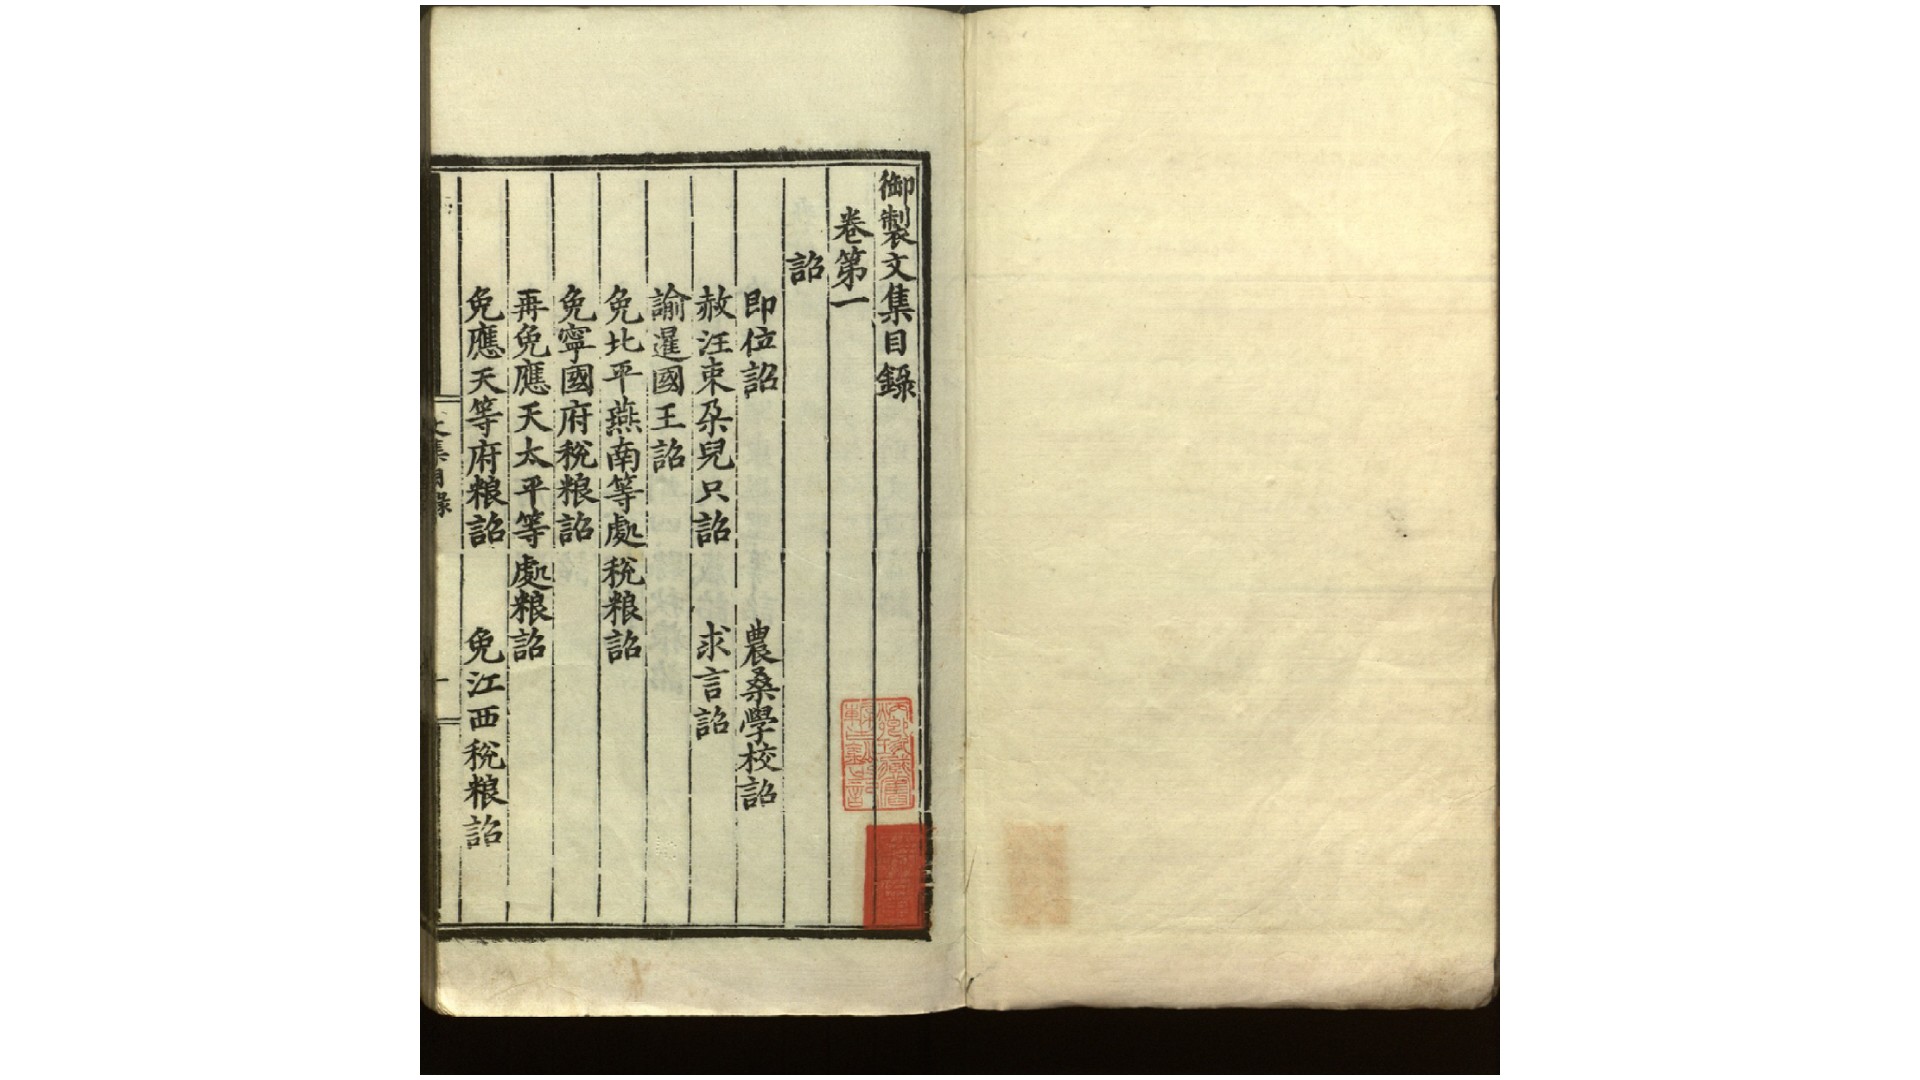 御製文集目錄
卷第一
詔
即位詔　農桑學校詔
赦汪束朶兒只詔　求言詔
諭暹國王詔
免北平燕南等處稅粮詔
免寧國府稅粮詔
再免應天太平等處粮詔
免應天等府粮詔　免江西稅粮詔
文集目錄　一